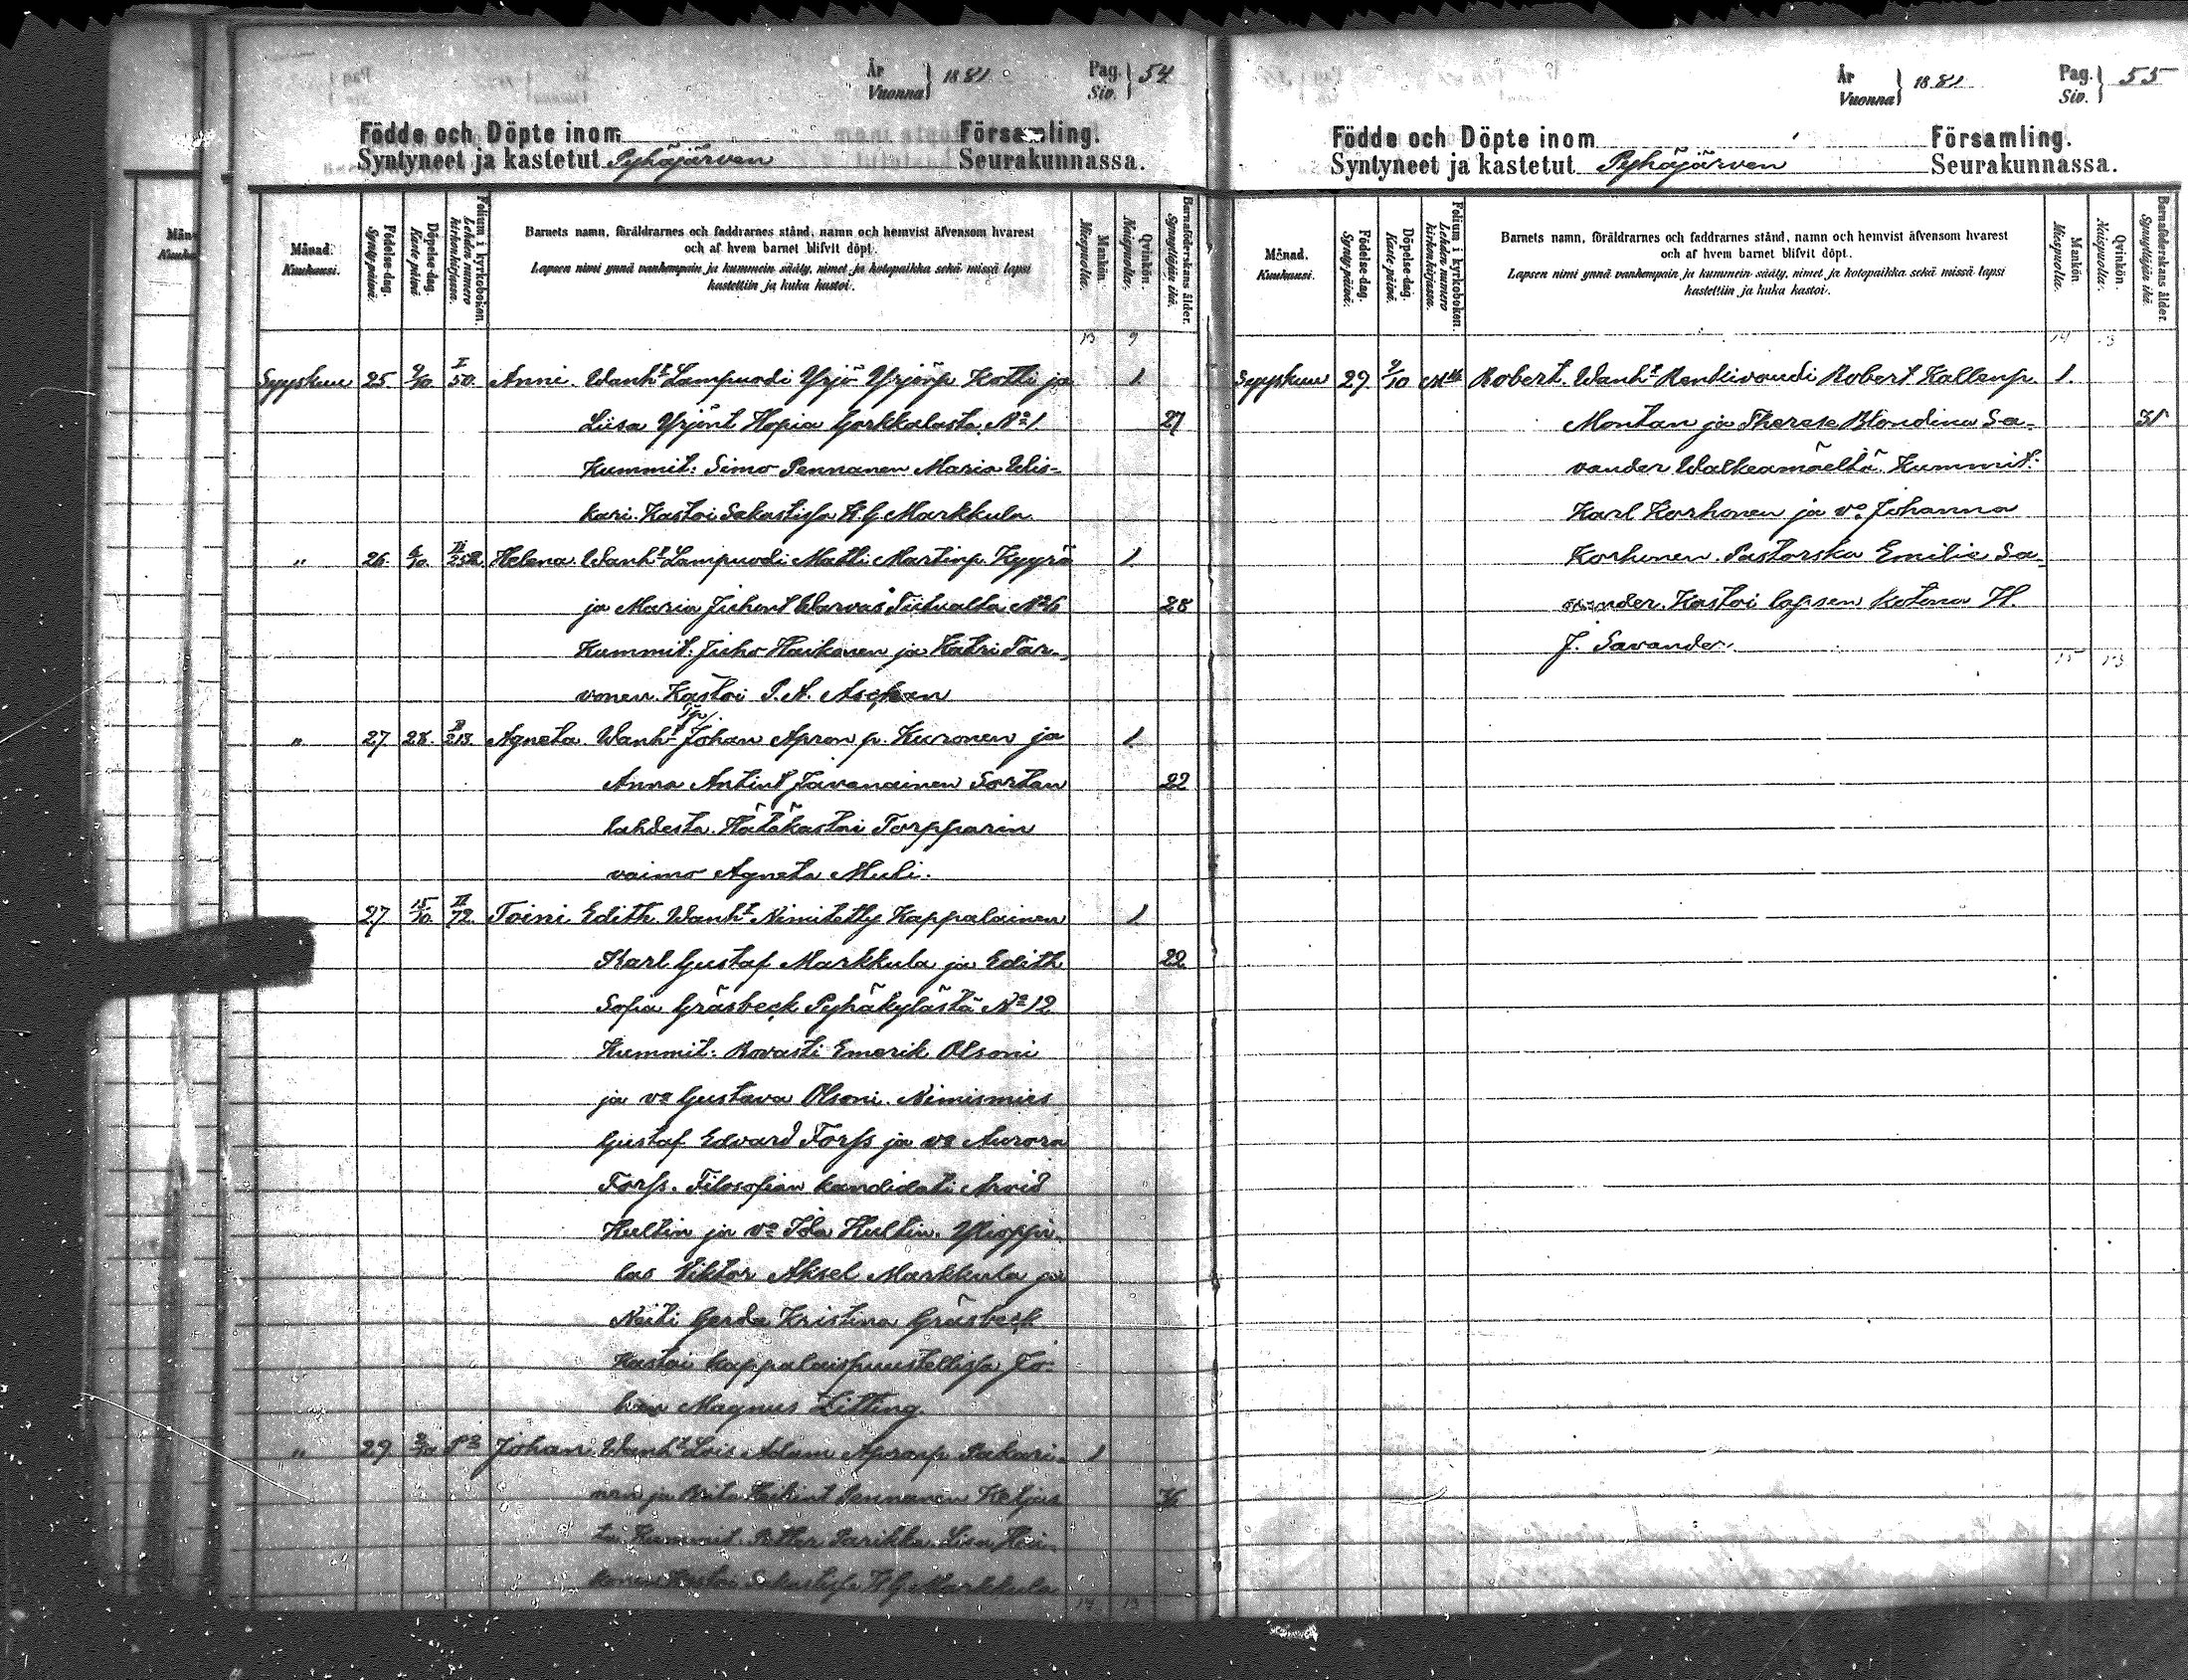 År
Vuonna } 1881. Pag.
Siv. } 54
Födde och Döpte inom Församling.
Syntyneet ja kastetut Pyhäjärven Seurakunnassa.
Månad.
Kuukausi.
Födelse-dag.
Synty päivä.
Döpelse-dag.
Kaste päivä
Folium i kyrkoboken.
Lehden numero kirkonkirjassa.
Barnets namn, föräldrarnes och faddrarnes stånd, namn och hemvist äfvensom hvarest
och af hvem barnet blifvit döpt.
Lapsen nimi ynnä vanhempain ja kummein sääty, nimet ja kotopaikka sekä missä lapsi
kastettiin ja kuka kastoi.
Mankön.
Miespuolia.
Qvinkön.
Naispuolia.
Barnaföderskans ålder.
Synnyttäjän ikä.
13 9
Syyskuu 25 9/10. I/50. Anni Wanht Lampuodi Yrjö Yrjönp. Kotti ja 1
Liisa Yrjönt Hopia Gorkkalasta No 1 27
Kummit: Simo Pennanen Maria Wis-
kari. Kastoi Sakastissa K. G. Markkula.
" 26. II Helena. Wanht Lampuodi Matti Martinp. Kyyrö 1
ja Maria Juhont Warvas Tiitualta No 6 28
Kummit: Juho Haikonen ja Katri Tar-
vonen. Kastoi P. A.
" 27. 28. 213. Agneta. Wanht Johan Apron p. Kuronen ja 1
Anna Antint Javanainen Sortan
22
lahdesta. Hätäkastoi Torpparin
vaimo Agneta Muli.
27. 15/10. II/72. Toini Edith. Wanht Nimitetty Kappalainen 1
Karl Gustaf Markkula ja Edith 22
Sofia Gräsbeck Pyhäkylästä No 12
Kummit: Rovasti Emerik Olsoni
ja vo Gustava Olsoni. Nimismies
Gustaf Edvard Forss ja vo Aurora
Forss. Filosofian kandidati Arvid
Hultin ja vo Ida Hultin. Ylioppi-
las Viktor Aksel Markkula ja
Neiti Gerda Kristina Gräsbeck
Kastoi kappalaispuustellissa Jo-
han Magnus Litting.
" 29. Johan Wanht Lois Adam Apronp. Pakari- 1
nen ja Heikint Pennanen Ketjas
ta. Kummit. Petter Parikka. Liisa Hei-
konen Kastoi Sakastissa K G Markkula
14 13
År
Vuonna } 1881 Pag.
Siv. } 55
Födde och Döpte inom Församling.
Syntyneet ja kastetut Pyhäjärven Seurakunnassa.
Månad.
Kuukausi.
Födelse-dag.
Synty päivä.
Döpelse-dag.
Kaste päivä.
Folium i kyrkoboken.
Lehden numero kirkonkirjassa.
Barnets namn, föräldrarnes och faddrarnes stånd, namn och hemvist äfvensom hvarest
och af hvem barnet blifvit döpt.
Lapsen nimi ynnä vanhempain ja kummein sääty, nimet ja kotopaikka sekä missä lapsi
kastettiin ja kuka kastoi.
Mankön
Miespuolia.
Qvinkön.
Naispuolia.
Barnaföderskans ålder.
Synnyttäjän ikä.
14 13
Syyskuu 29. 9/10 Robert. Wanht Renkivoudi Robert Kallenp. 1.
Montan ja Therese Blondina Sa-
vander Walkeamäeltä. Kummit:
Karl Korhonen ja vo Johanna
Korhonen. Pastorska Emilie Sa-
vander. Kastoi lapsen kotona H.
J. Savander.
15 13